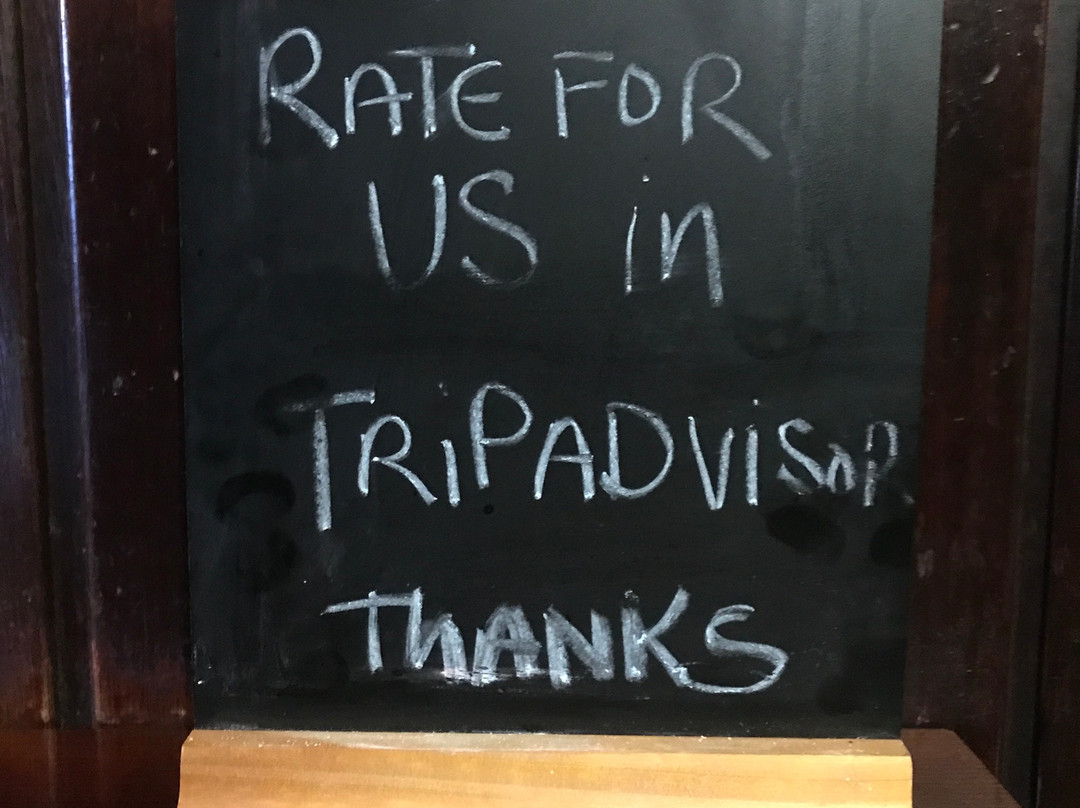 RATE FOR
US in
TRiPADViSOR
THANKS